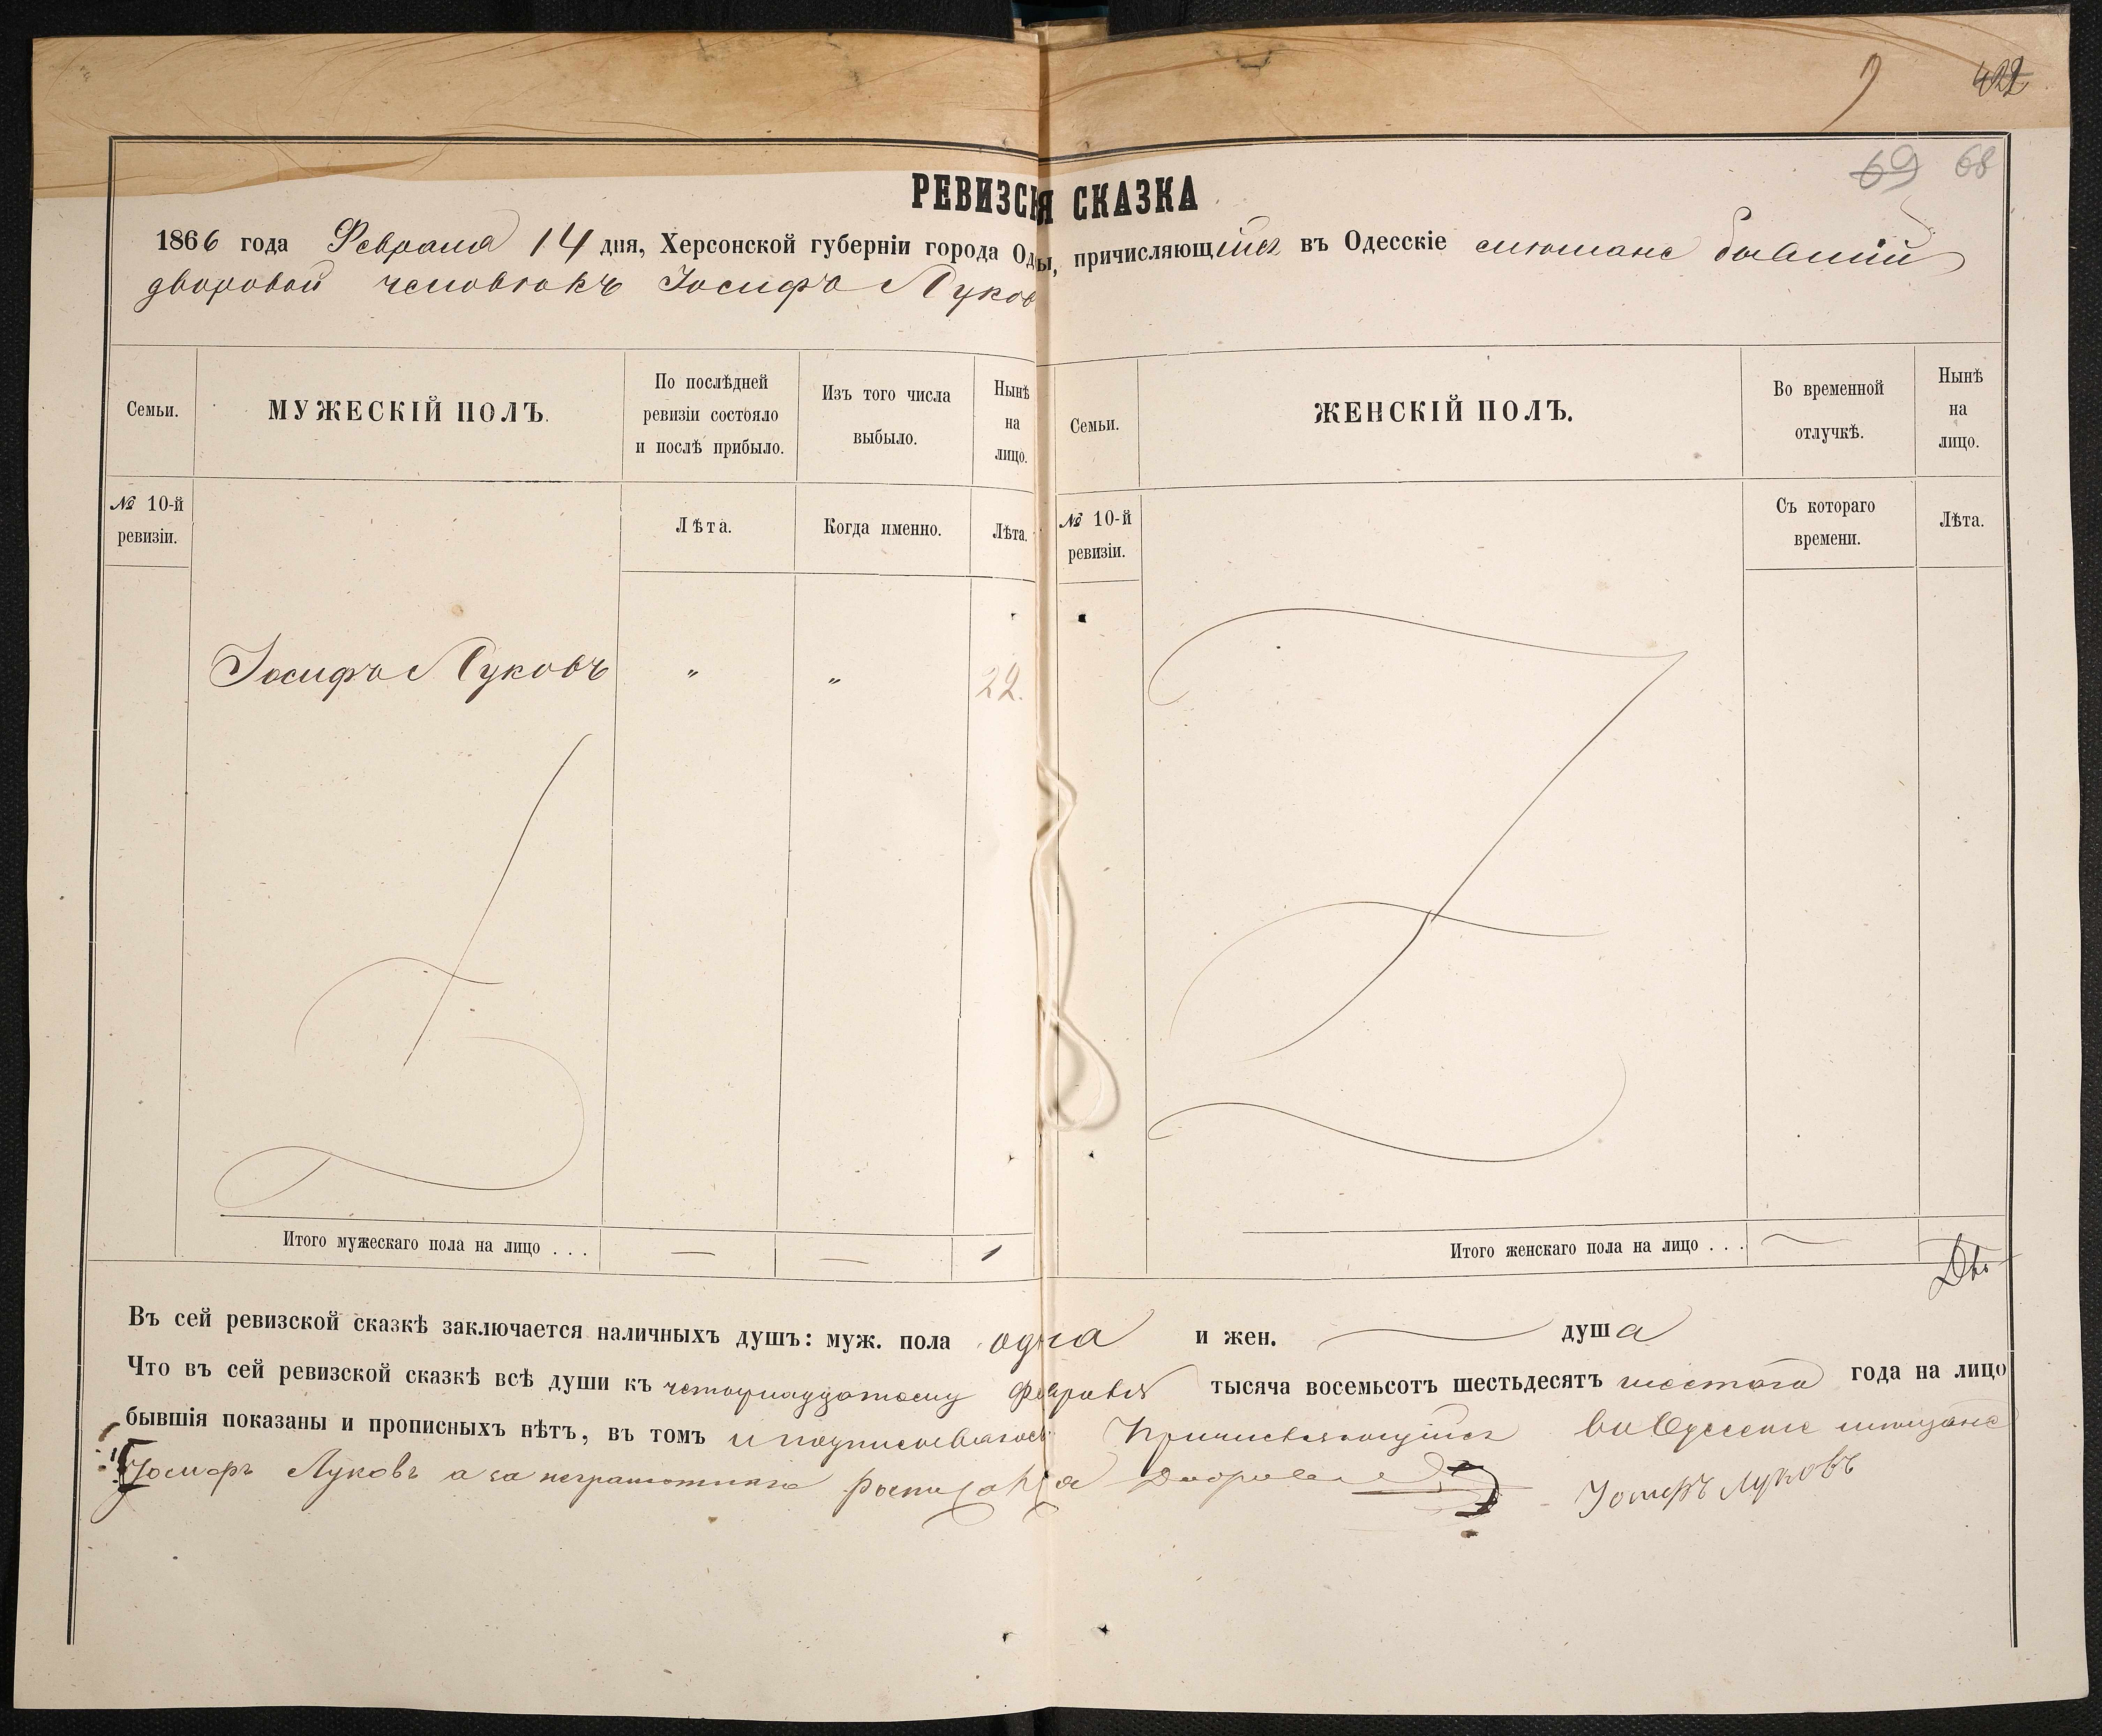 422
69 68
РЕВИЗСКАЯ СКАЗКА
1866 года Февраля 14 дня, Херсонской губерніи города Одессы, причисляющійся въ Одесскіе мѣщане бывшій
дворовой человѣкъ Іосифъ Луковъ
Семьи.
МУЖЕСКІЙ ПОЛЪ.
По послѣдней
ревизіи состояло
и послѣ прибыло.
Изъ того числа
выбыло.
Нынѣ
на
лицо.
Семьи.
ЖЕНСКІЙ ПОЛЪ.
Во временной
отлучкѣ.
Нынѣ
на
лицо.
№ 10-й
ревизіи.
Лѣта.
Когда именно.
Лѣта.
№ 10-й
ревизіи.
Съ котораго
времени.
Лѣта.
Іосифъ Луковъ " " 22.
Итого мужескаго пола на лицо . . . — — 1
Итого женскаго пола на лицо . . . —
Въ сей ревизской сказкѣ заключается наличныхъ душъ: муж. пола одна и жен. — душа
Что въ сей ревизской сказкѣ всѣ души къ четырнадцатому Февраля тысяча восемьсотъ шестьдесятъ шестого года на лицо
бывшія показаны и прописныхъ нѣтъ, въ томъ и подписываюсь Причисляющійся въ Одесскіе мѣщане
Іосифъ Луковъ а за неграмотнаго Іосифъ Луковъ